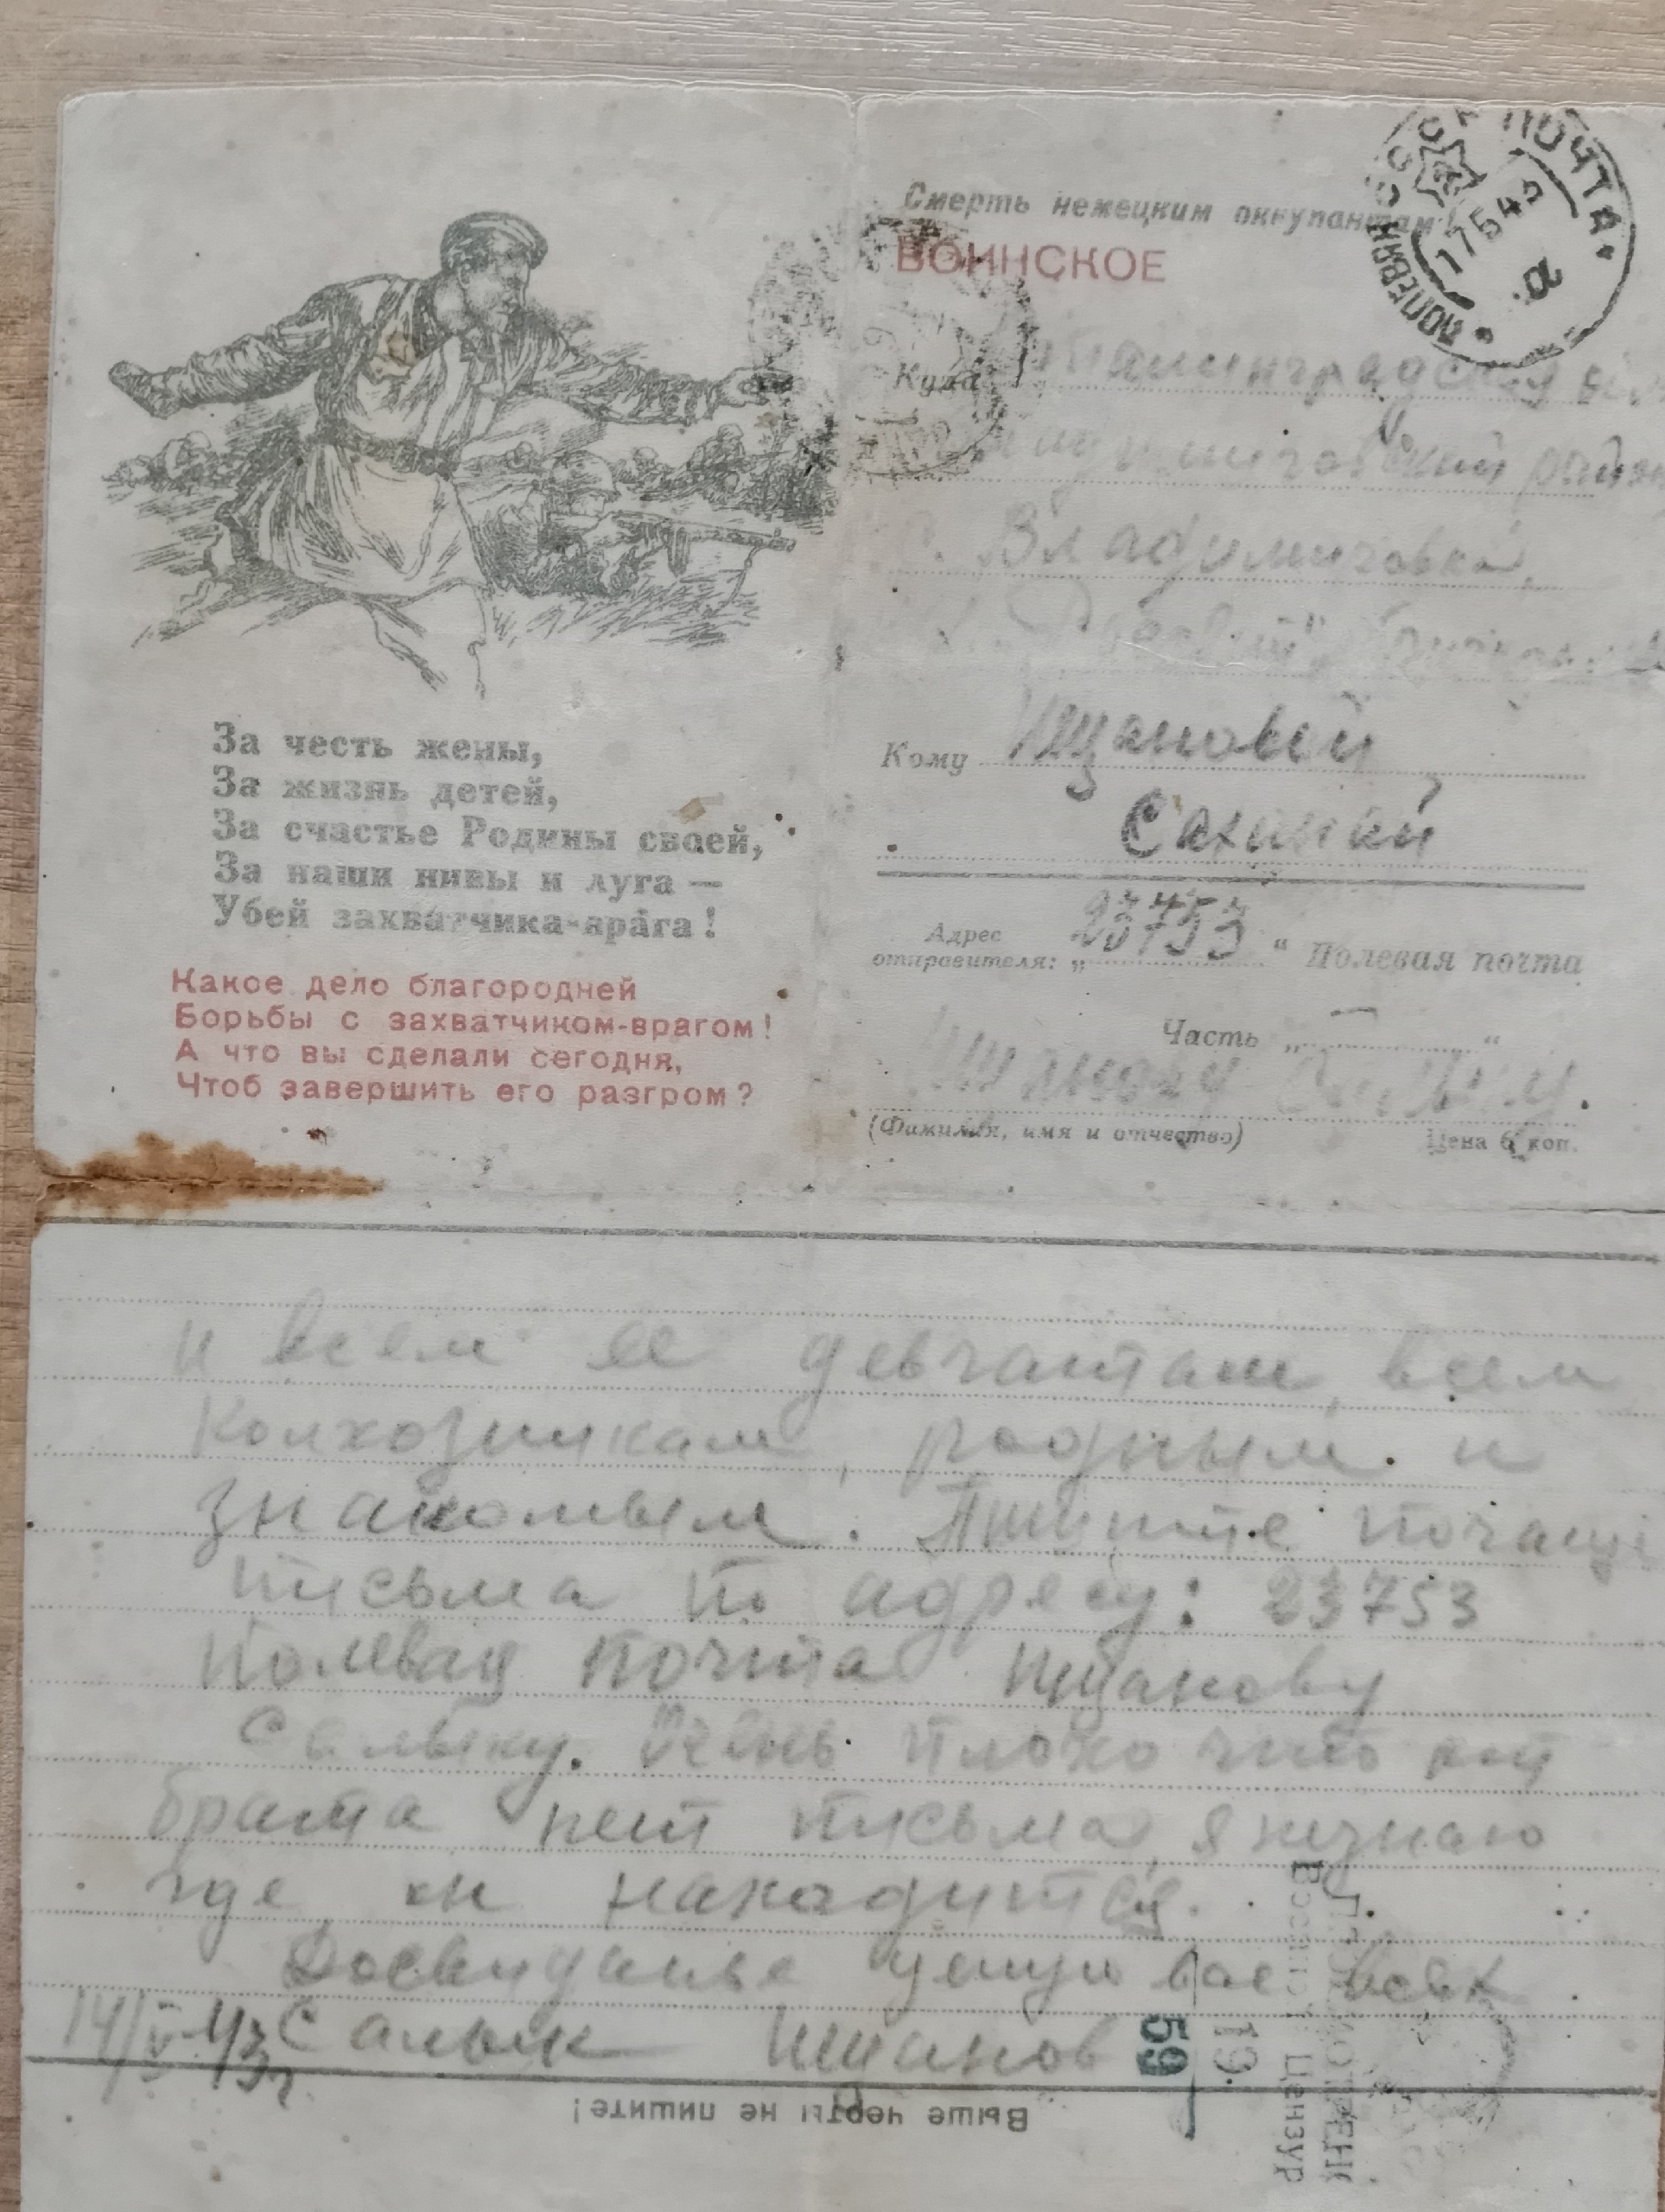 За честь жены,
За жизнь детей,
За счастье Родины своей,
За наши нивы и луга —
Убей захватчика-врага!
Какое дело благородней
Борьбы с захватчиком-врагом!
А что вы сделали сегодня,
Чтоб завершить его разгром?
ПОЧТА
17 5 43
Смерть немецким оккупантам!
ВОИНСКОЕ
Куда
район
Владимировка,
Кому Ищановой
Адрес
отправителя: „23753“ Полевая почта
Часть „ “
(Фамилия, имя и отчество) Цена 6 коп.
и всем ее девчатам, всем
колхозникам, родным и
знакомым. Пишите почаще
письма по адресу: 23753
Полевая почта Ищанову
Салыку. Очень плохо что от
брата нет письма, я незнаю
где он находится.
Досвиданье целую вас всех.
14/V-43г. Салык Ищанов
Выше черты не пишите!
Военной Цензур
19
59